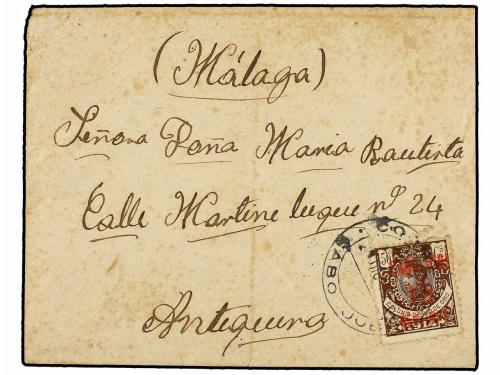 (Málaga)
Señora Doña Maria Bautista
Calle Martine luque nº 24
Antequera
CABO JUB
50